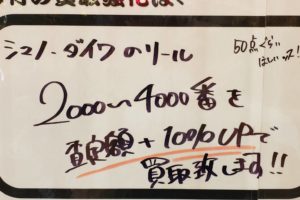 シマノ・ダイワのリール
50点ぐらい
ほしいッス!
2000〜4000番を
査定額+10%UPで
買取致します!!